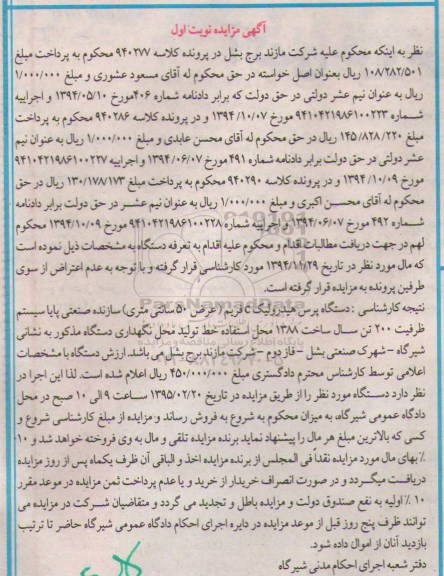 آگهی مزایده نوبت اول
نظر به اینکه محکوم علیه شرکت مازند برج بشل در پرونده کلاسه ۹۴۰۲۷۷ محکوم به پرداخت مبلغ
۱۰۸/۲۸۲/۵۰۱ ریال بعنوان اصل خواسته در حق محکوم له آقای مسعود عشوری و مبلغ ۱/۰۰۰/۰۰۰
ریال به عنوان نیم عشر دولتی در حق دولت که برابر دادنامه شماره ۴۰۶مورخ ۱۳۹۴/۰۵/۱۰ و اجراییه
شماره ۹۴۱۰۴۲۱۹۸۶۱۰۰۲۲۳ مورخ ۱۳۹۴/۱۰/۰۷ و در پرونده کلاسه ۹۴۰۲۸۶ محکوم به پرداخت
مبلغ ۱۴۵/۸۲۸/۲۲۰ ریال در حق محکوم له آقای محسن عابدی و مبلغ ۱/۰۰۰/۰۰۰ ریال به عنوان نیم
عشر دولتی در حق دولت برابر دادنامه شماره ۴۹۱ مورخ ۱۳۹۴/۰۶/۰۷ و اجراییه ۹۴۱۰۴۲۱۹۸۶۱۰۰۲۲۷
مورخ ۱۳۹۴/۱۰/۰۹ و در پرونده کلاسه ۹۴۰۲۹۰ محکوم به پرداخت مبلغ ۱۳۰/۱۷۸/۱۷۳ ریال در حق
محکوم له آقای محسن اکبری و مبلغ ۱/۰۰۰/۰۰۰ ریال به عنوان نیم عشر در حق دولت برابر دادنامه
شماره ۴۹۲ مورخ ۱۳۹۴/۰۶/۰۷ و اجراییه شماره ۹۴۱۰۴۲۱۹۸۶۱۰۰۲۲۸ مورخ ۱۳۹۴/۱۰/۰۹ محکوم
لهم در جهت دریافت مطالبات اقدام و محکوم علیه اقدام به تعرفه دستگاه به مشخصات ذیل نموده است
که مال مورد نظر در تاریخ ۱۳۹۴/۱۱/۲۹ مورد کارشناسی قرار گرفته و با توجه به عدم اعتراض از سوی
طرفین پرونده به مزایده قرار گرفته است.
نتیجه کارشناسی : دستگاه پرس هیدرولیک C فریم (عرض ۵۰ سانتی متری) سازنده صنعتی پایا سیستم
ظرفیت ۲۰۰ تن سال ساخت ۱۳۸۸ محل استفاده خط تولید محل نگهداری دستگاه مذکور به نشانی
شیرگاه – شهرک صنعتی بشل – فاز دوم – شرکت مازند برج بشل می باشد. ارزش دستگاه با مشخصات
اعلامی توسط کارشناس محترم دادگستری مبلغ ۴۵۰/۰۰۰/۰۰۰ ریال اعلام شده است. لذا این اجرا در
نظر دارد دستگاه مورد نظر را از طریق مزایده در تاریخ ۱۳۹۵/۰۲/۲۰ ساعت ۹ الی ۱۰ صبح در محل
دادگاه عمومی شیرگاه، به میزان محکوم به شروع به فروش رساند و مزایده از مبلغ کارشناسی شروع و
کسی که بالاترین مبلغ هر مال را پیشنهاد نماید برنده مزایده تلقی و مال به وی فروخته خواهد شد و ۱۰
٪ بهای مال مورد مزایده نقداً فی المجلس از برنده مزایده اخذ و الباقی آن ظرف یکماه پس از روز مزایده
دریافت میگردد و در صورت انصراف خریدار از خرید و یا عدم پرداخت ثمن مزایده در موعد مقرر
۱۰ ٪ اولیه به نفع صندوق دولت و مزایده باطل و تجدید می گردد و متقاضیان شرکت در مزایده می
توانند ظرف پنج روز قبل از موعد مزایده در دایره اجرای احکام دادگاه عمومی شیرگاه حاضر تا ترتیب
بازدید آنان از اموال داده شود.
دفتر شعبه اجرای احکام مدنی شیرگاه